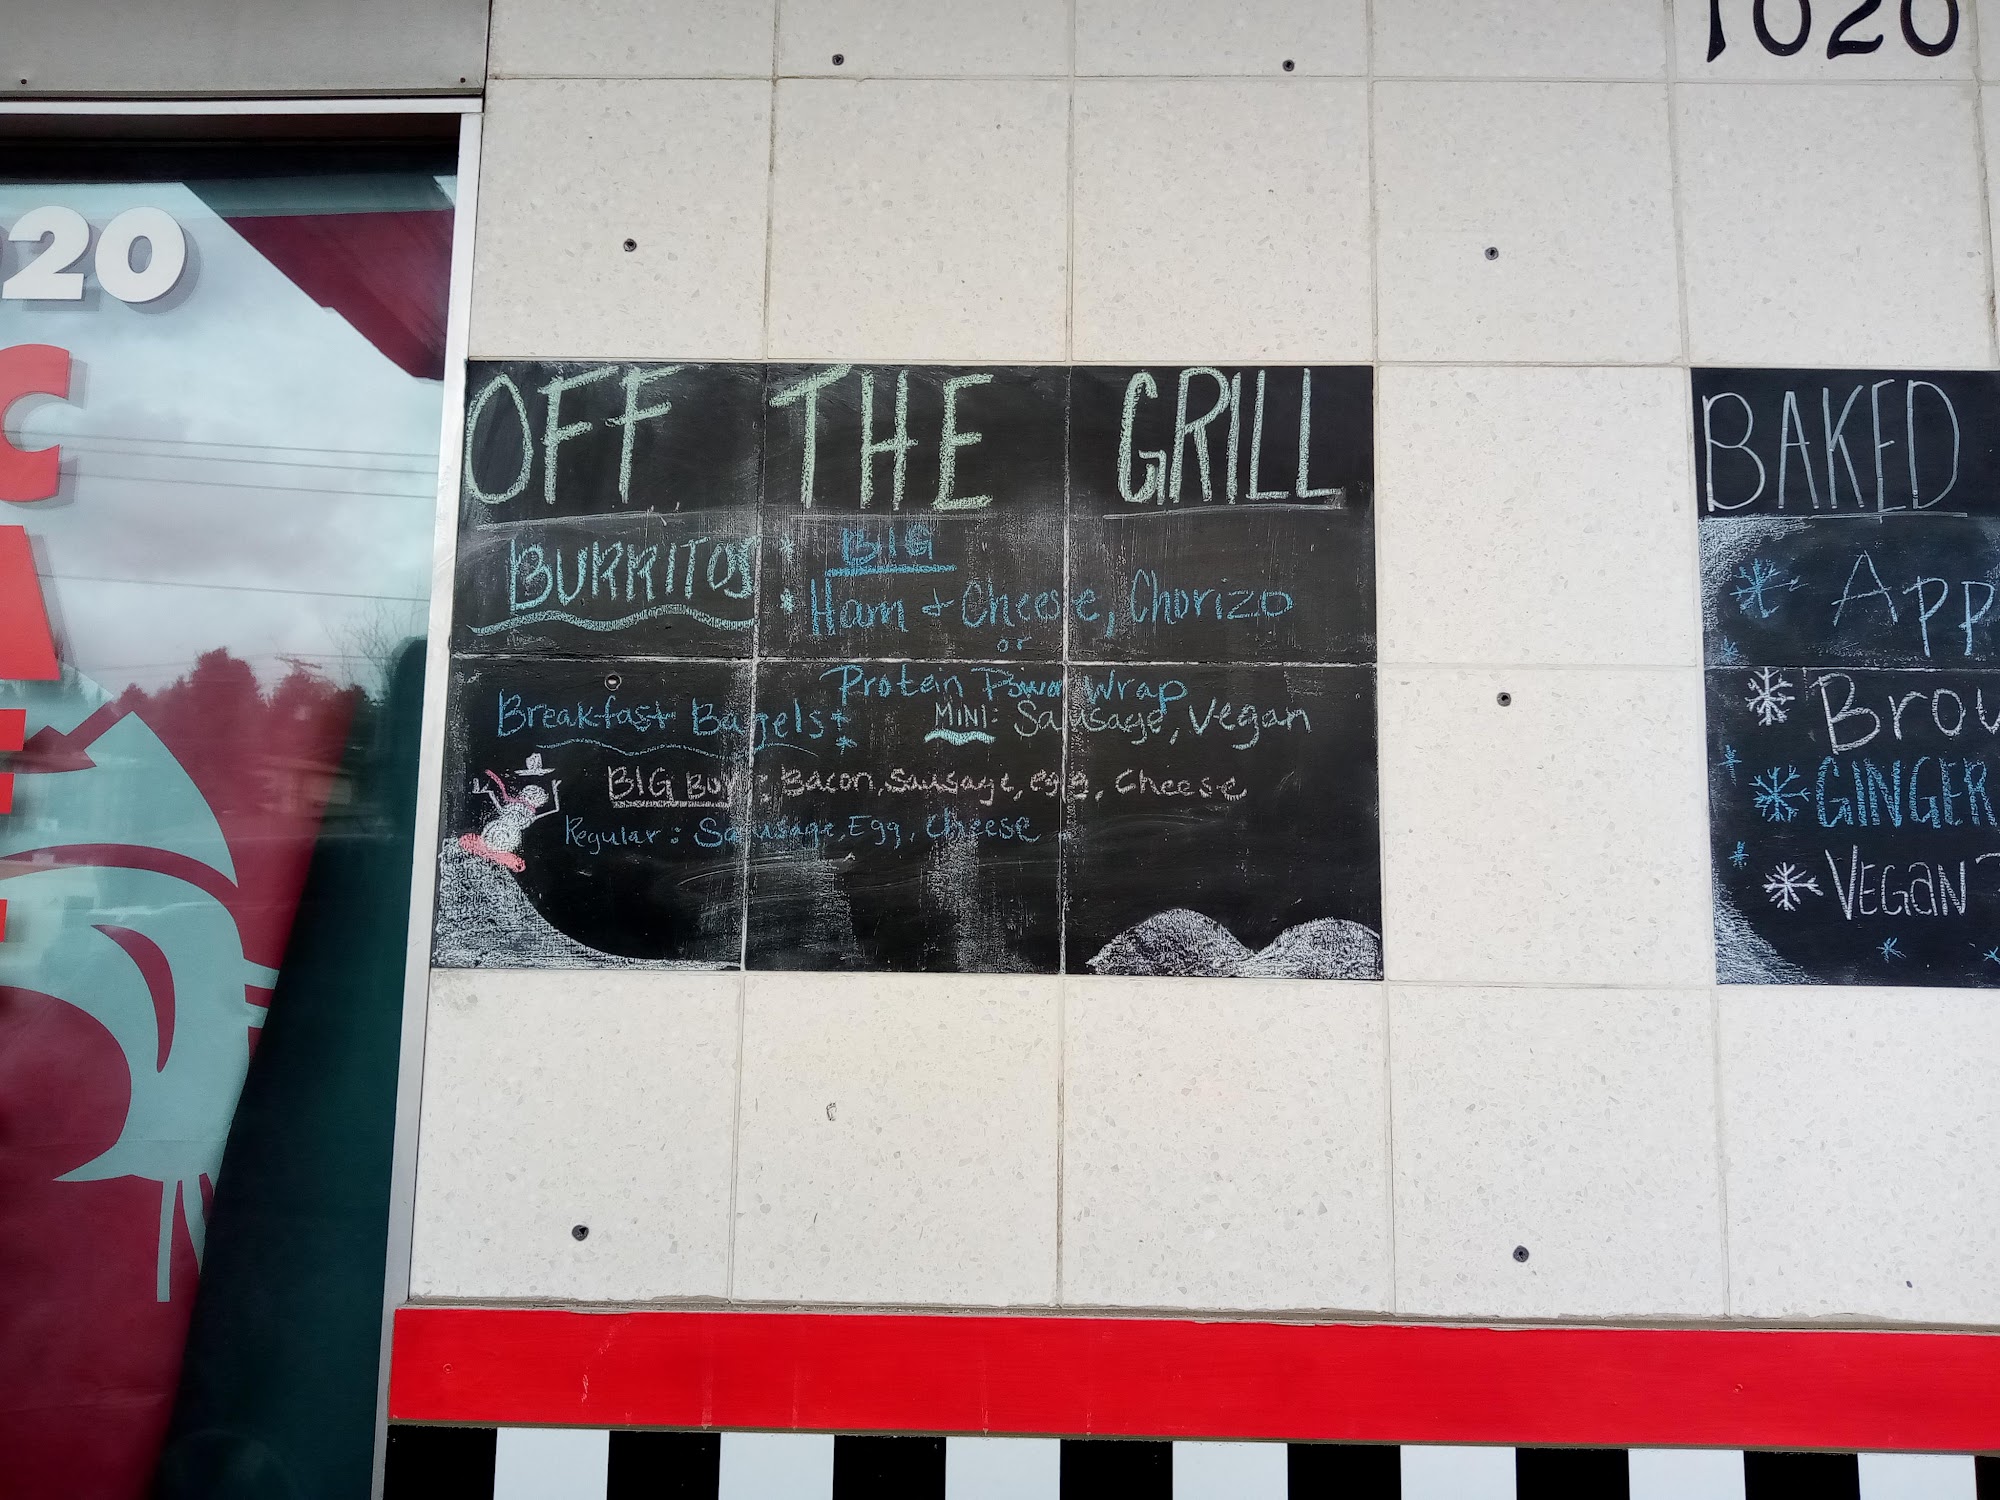 1020
20
CAFE
OFF THE GRILL
BURRITOS: BIG
Ham + Cheese, Chorizo
or
Protein Power Wrap
Breakfast Bagels: MINI: Sausage, Vegan
BIG BOY: Bacon, Sausage, egg, Cheese
Regular: Sausage, Egg, Cheese
BAKED
App
Brow
GINGER
VEGAN